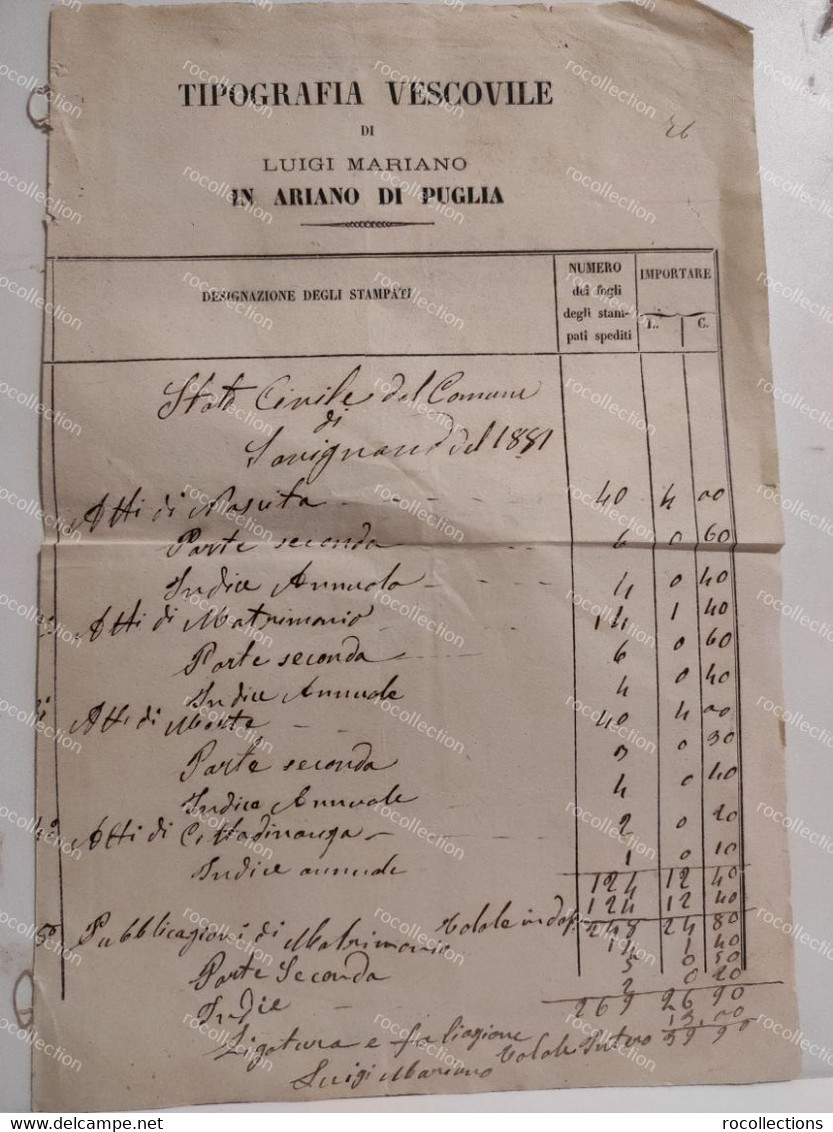 TIPOGRAFIA VESCOVILE
DI
LUIGI MARIANO
IN ARIANO DI PUGLIA
26
DESIGNAZIONE DEGLI STAMPATI
NUMERO dei fogli degli stam-pati spediti
IMPORTARE
L. C.
Stato Civile del Comune
di
Savignano del 1881
Atti di Nascita 40 4 00
Parte seconda 6 0 60
Indice Annuale 4 0 40
Atti di Matrimonio 14 1 40
Parte seconda 6 0 60
Indice Annuale 4 0 40
Atti di Morte 40 4 00
Parte seconda 3 0 30
Indice Annuale 4 0 40
4° Atti di Cittadinanza 2 0 20
Indice annuale 1 0 10
124 12 40
124 12 40
Totale in dop. 248 24 80
5° Pubblicazioni di Matrimonio 14 1 40
Parte Seconda 5 0 50
Indice 2 0 20
269 26 90
Ligatura e foliazione 13,00
Totale Intero 39 90
Luigi Mariano
rocollections